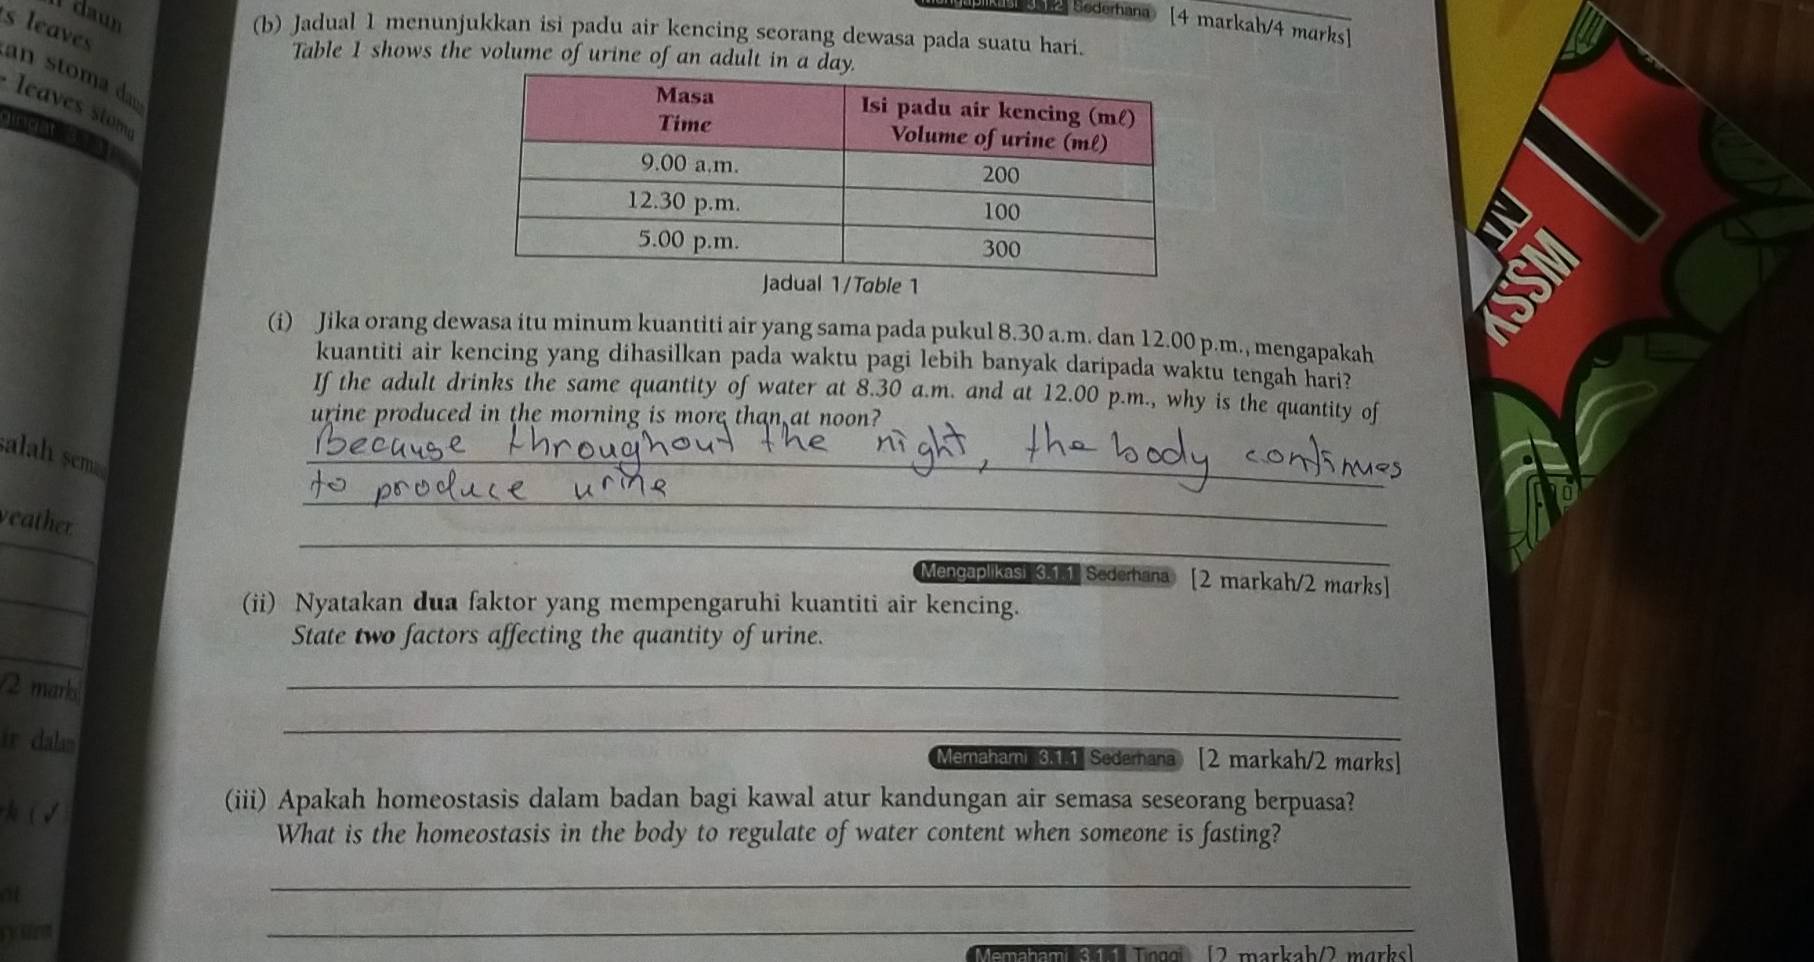 daun
s leaves
an stoma daun
leaves stoma
3.1.2 Sederhana [4 markah/4 marks]
(b) Jadual 1 menunjukkan isi padu air kencing seorang dewasa pada suatu hari.
Table 1 shows the volume of urine of an adult in a day.
Masa
Time
Isi padu air kencing (mℓ)
Volume of urine (mℓ)
9.00 a.m. 200
12.30 p.m. 100
5.00 p.m. 300
Jadual 1/Table 1
(i) Jika orang dewasa itu minum kuantiti air yang sama pada pukul 8.30 a.m. dan 12.00 p.m., mengapakah
kuantiti air kencing yang dihasilkan pada waktu pagi lebih banyak daripada waktu tengah hari?
If the adult drinks the same quantity of water at 8.30 a.m. and at 12.00 p.m., why is the quantity of
urine produced in the morning is more than at noon?
Because throughout the night, the body continues
to produce urine
Mengaplikasi 3.1.1 Sederhana [2 markah/2 marks]
(ii) Nyatakan dua faktor yang mempengaruhi kuantiti air kencing.
State two factors affecting the quantity of urine.
Memahami 3.1.1 Sederhana [2 markah/2 marks]
(iii) Apakah homeostasis dalam badan bagi kawal atur kandungan air semasa seseorang berpuasa?
What is the homeostasis in the body to regulate of water content when someone is fasting?
Memahami 3.1.1 Tinggi [2 markah/2 marks]
salah sem
weather.
/2 marks
ir dalam
KSSM